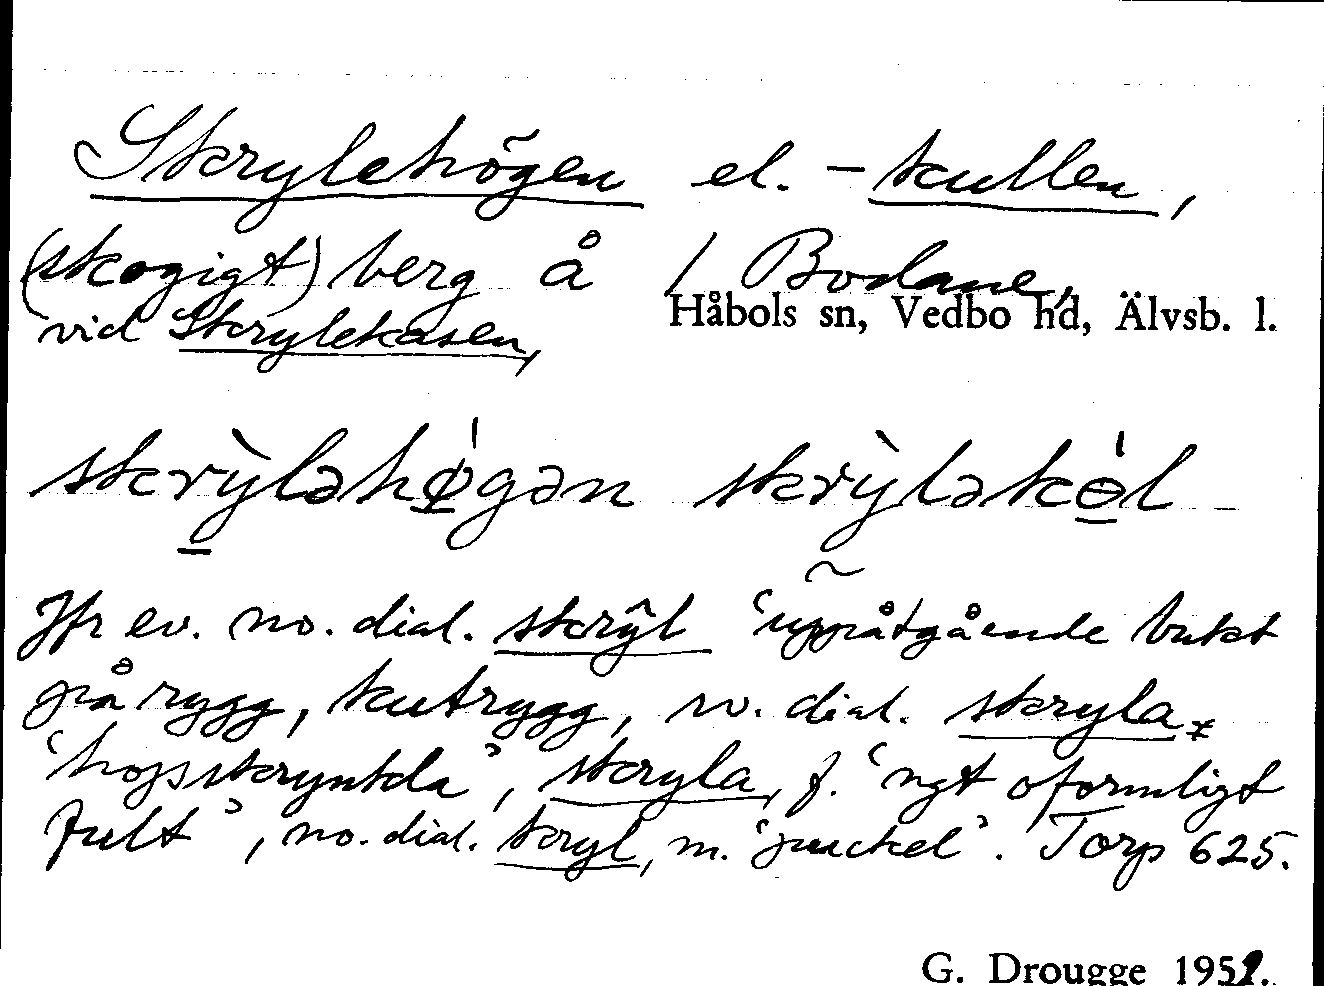 Skrylehögen el. -kullen,
(skogigt) berg å / Bodane,
vid Skrylekasen, Håbols sn, Vedbo hd, Älvsb. l.
skrỳləhø̀gən skrỳləkɵ́l
Jfr ev. no. dial. skrȳl 'uppåtgående bukt
på rygg, kutrygg, sv. dial. skryla
'hopskrynkla', skryla, f. 'ngt oformligt
fult', no. dial. skryl, m. 'puckel'. Torp 625.
G. Drougge 1952.